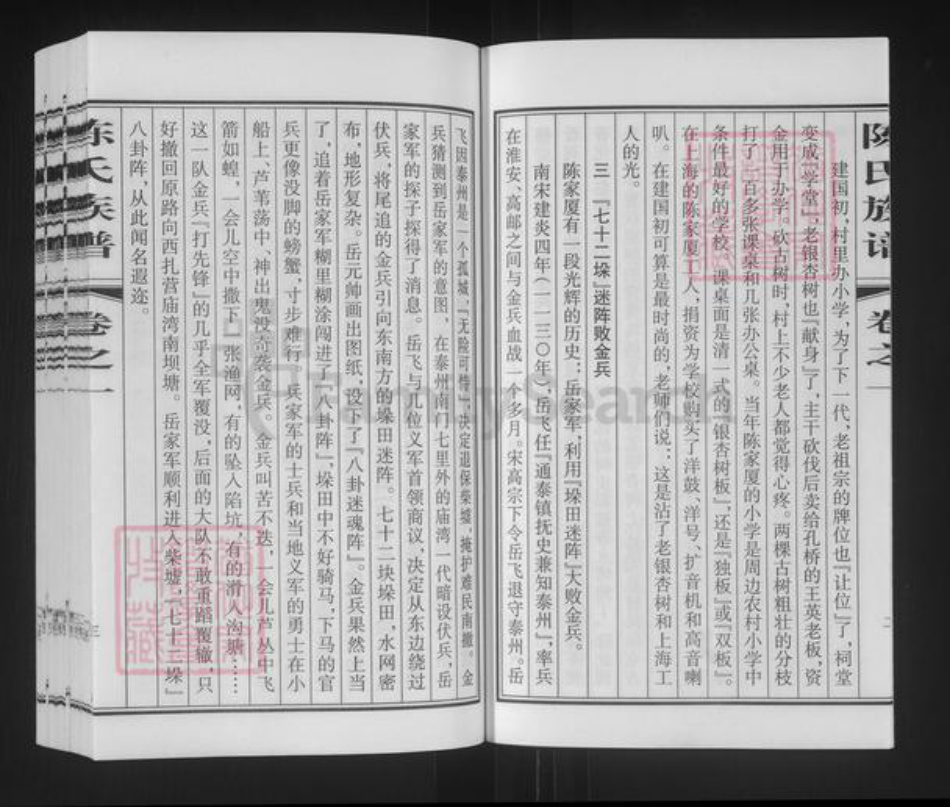 陈氏族谱 卷之一
建国初,村里办小学,为了下一代,老祖宗的牌位也『让位』了,祠堂
变成『学堂』,老银杏树也『献身』了,主干砍伐后卖给孔桥的王英老板,资
金用于办学。砍古树时,村上不少老人都觉得心疼。两棵古树粗壮的分枝
打了一百多张课桌和几张办公桌。当年陈家厦的小学是周边农村小学中
条件最好的学校,课桌面是清一式的『银杏树板』,还是『独板』或『双板』。
在上海的陈家厦工人,捐资为学校购买了洋鼓、洋号、扩音机和高音喇
叭。在建国初可算是最时尚的,老师们说:这是沾了老银杏树和上海工
人的光。
三 『七十二垛』迷阵败金兵
陈家厦有一段光辉的历史:岳家军,利用『垛田迷阵』大败金兵。
南宋建炎四年(一一三〇年)岳飞任『通泰镇抚史兼知泰州』,率兵
在淮安、高邮之间与金兵血战一个多月。宋高宗下令岳飞退守泰州。岳
飞因泰州是一个孤城,『无险可恃』,决定退保柴墟,掩护难民南撤。金
兵猜测到岳家军的意图,在泰州南门七里外的庙湾一代暗设伏兵,岳
家军的探子探得了消息。岳飞与几位义军首领商议,决定从东边绕过
伏兵,将尾追的金兵引向东南方的垛田迷阵。七十二块垛田,水网密
布,地形复杂。岳元帅画出图纸,设下了『八卦迷魂阵』。金兵果然上当
了,追着岳家军糊里糊涂闯进了『八卦阵』,垛田中不好骑马,下马的官
兵更像没脚的螃蟹,寸步难行。兵家军的士兵和当地义军的勇士在小
船上、芦苇荡中、神出鬼没奇袭金兵。金兵叫苦不迭,一会儿芦丛中飞
箭如蝗,一会儿空中撒下一张渔网,有的坠入陷坑,有的滑入沟塘……
这一队金兵『打先锋』的几乎全军覆没,后面的大队不敢重蹈覆辙,只
好撤回原路向西扎营庙湾南坝塘。岳家军顺利进入柴墟,『七十二垛』
八卦阵,从此闻名遐迩。
陈氏族谱 卷之一
三
FamilySearch